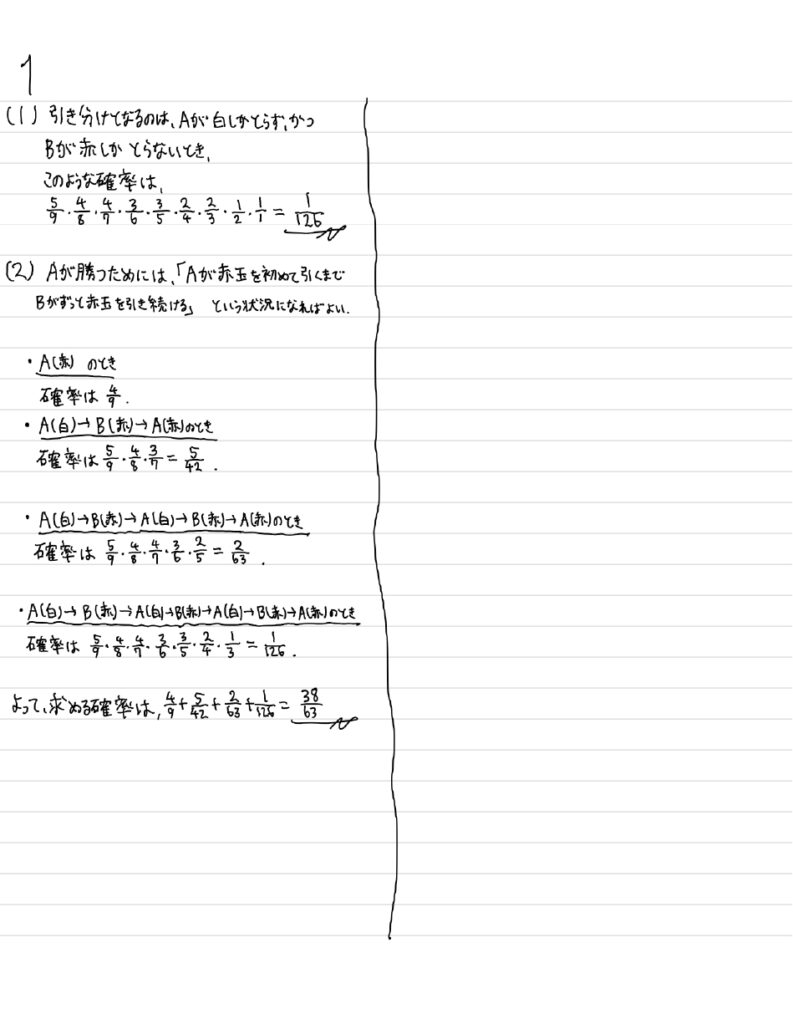 1
(1) 引き分けとなるのは、Aが白しかとらず、かつ
Bが赤しか とらないとき、
このような確率は、
5/9・4/8・4/7・3/6・3/5・2/4・2/3・1/2・1/1 = 1/126
(2) Aが勝つためには、「Aが赤玉を初めて引くまで
Bがずっと赤玉を引き続ける」 という状況になればよい.
・A(赤) のとき
確率は 4/9.
・A(白)→B(赤)→A(赤)のとき
確率は 5/9・4/8・3/7 = 5/42.
・A(白)→B(赤)→A(白)→B(赤)→A(赤)のとき
確率は 5/9・4/8・4/7・3/6・2/5 = 2/63.
・A(白)→B(赤)→A(白)→B(赤)→A(白)→B(赤)→A(赤)のとき
確率は 5/9・4/8・4/7・3/6・3/5・2/4・1/3 = 1/126.
よって、求める確率は、4/9+5/42+2/63+1/126 = 38/63